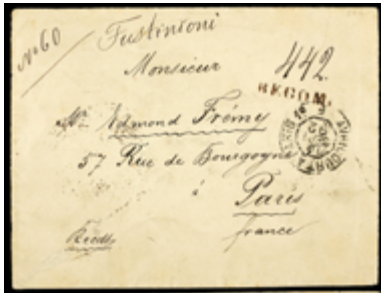 No 60
Fustinioni
Monsieur
442
RECOM.
Mr Edmond Frémy
57 Rue de Bourgogne
à
Paris
france